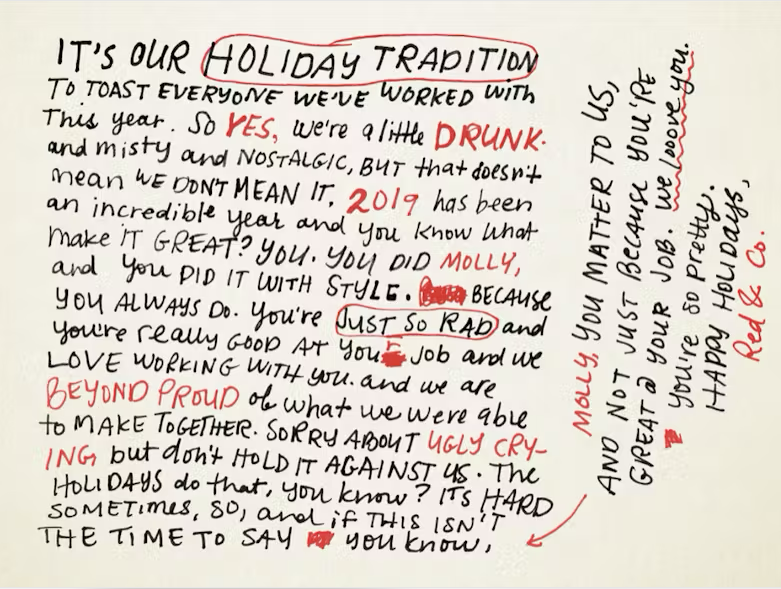 IT'S OUR HOLIDAY TRADITION
TO TOAST EVERYONE WE'VE WORKED WITH
This year. So YES, we're a little DRUNK.
and misty and NOSTALGIC, BUT that doesn't
mean WE DON'T MEAN IT. 2019 has been
an incredible year and you know what
make IT GREAT? YOU. YOU DID MOLLY,
and you DID IT WITH STYLE. BECAUSE
YOU ALWAYS DO. You're JUST SO RAD and
you're really GOOD AT your Job and we
LOVE WORKING WITH YOU. and we are
BEYOND PROUD of what we were able
to MAKE TOGETHER. SORRY ABOUT UGLY CRY-
ING, but don't HOLD IT AGAINST US. The
HOLIDAYS do that, you know? IT'S HARD
SOMETIMES, SO, and if THIS ISN'T
THE TIME TO SAY you know,
MOLLY, YOU MATTER TO US,
AND NOT JUST BECAUSE YOU'RE
GREAT @ YOUR JOB. We looove you.
You're so pretty.
HAPPY HOLIDAYS,
Red & Co.